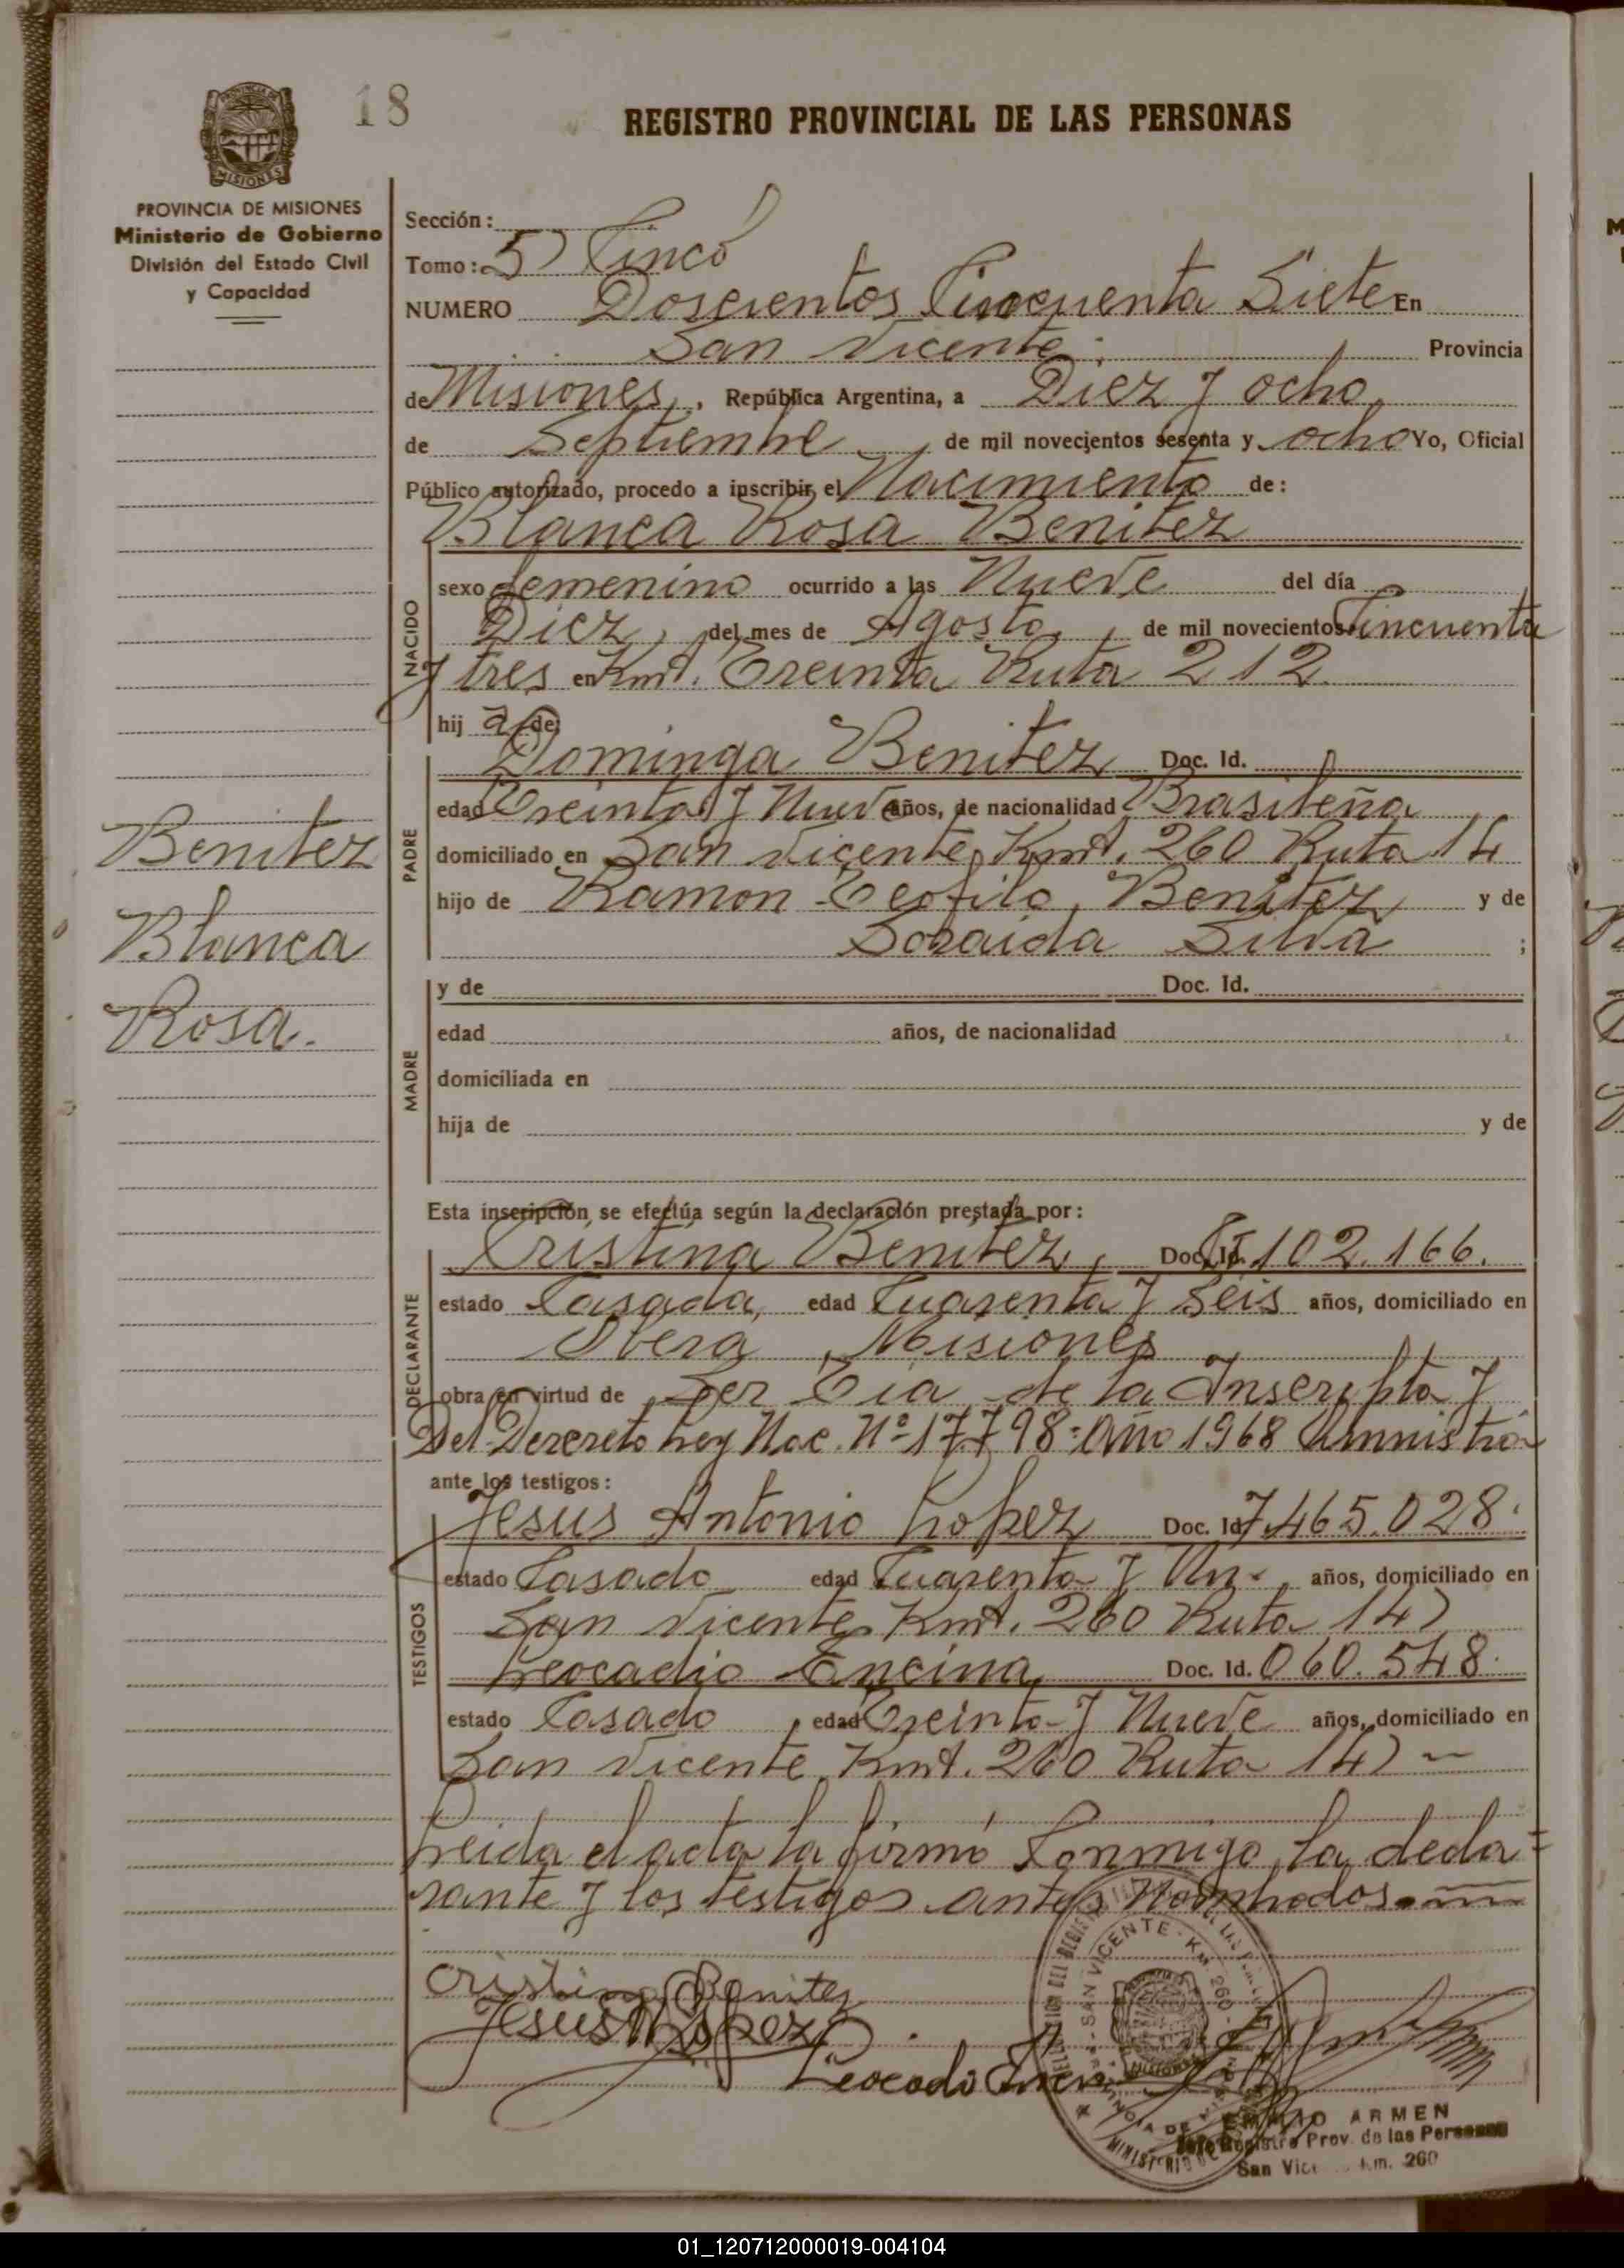 18
REGISTRO PROVINCIAL DE LAS PERSONAS
MISIONES
PROVINCIA DE MISIONES
Ministerio de Gobierno
División del Estado Civil
y Capacidad
Sección:
Tomo: 5) Cinco
NUMERO Doscientos Cincuenta Siete En
San Vicente Provincia
de Misiones, República Argentina, a Diez y ocho
de Septiembre, de mil novecientos sesenta y ocho Yo, Oficial
Público autorizado, procedo a inscribir el Nacimiento de:
Blanca Rosa Benitez
NACIDO
sexo femenino ocurrido a las Nueve del día
Diez, del mes de Agosto, de mil novecientos Cincuenta
y tres en Kmt. Treinta Ruta 212
hij a de:
PADRE
Dominga Benitez Doc. Id.
edad Treinta y Nueve años, de nacionalidad Brasileña
domiciliado en San Vicente, Kmt. 260 Ruta 14
hijo de Ramon Teofilo Benitez y de
Soraida Silva ;
Benitez
Blanca
Rosa.
MADRE
y de Doc. Id.
edad años, de nacionalidad
domiciliada en
hija de y de
Esta inscripción se efectúa según la declaración prestada por:
DECLARANTE
Cristina Benitez, Doc. Id. 102.166.
estado Casada, edad Cuarenta y Seis años, domiciliado en
Obera, Misiones
obra en virtud de Ser Tia de la Inscripta y
Del Decreto Ley Nac. Nº 17.798 = Año 1968
ante los testigos:
TESTIGOS
Jesus Antonio Lopez Doc. Id. 7.465.028.
estado Casado edad Cuarenta y Un años, domiciliado en
San Vicente Kmt. 260 Ruta 14)
Leocadio Encina Doc. Id. 060.548.
estado Casado, edad Treinta y Nueve años, domiciliado en
San Vicente, Kmt. 260 Ruta 14)
Leida el acta la firmó Conmigo, la decla=
rante y los testigos antes Nombrados.
Cristina Benitez
Jesus A Lopez
SAN VICENTE - KM 260
EMILIO ARMEN
Jefe Registro Prov. de las Personas
San Vicente Km. 260
01_120712000019-004104